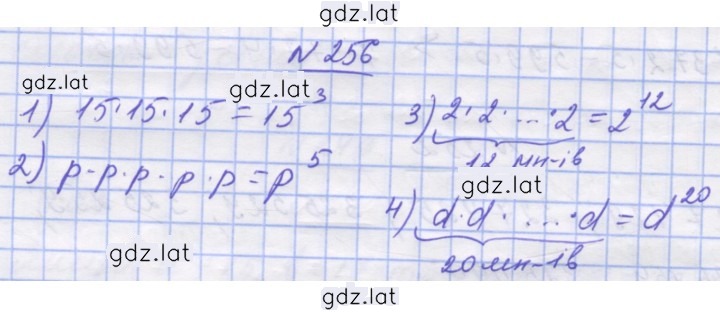 gdz.lat
N 256
gdz.lat
gdz.lat
1) 15·15·15=15³
3) 2·2·...·2=2¹²
12 мн-ів
2) p·p·p·p·p=p⁵
gdz.lat
4) d·d·...·d=d²⁰
20 мн-ів
gdz.lat
gdz.lat